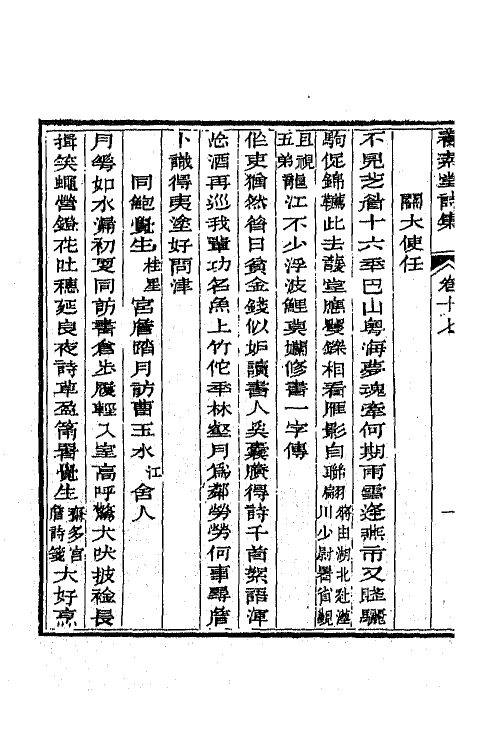 養素堂詩集 卷十七 一
關大使任
不見芝眉十六年巴山粵海夢魂牽何期雨雪逢燕市又賦驪
駒促錦韉此去護堂應矍鑠相看雁影自聯翩
將由湖北赴灉
川少尉署省覲
且視
五弟
龍江不少浮波鯉莫嬾修書一字傳
作吏猶然昔日貧金錢似妒讀書人奚囊賸得詩千首絮語渾
忘酒再巡我輩功名魚上竹佗年林壑月為鄰勞勞何事尋詹
卜識得夷塗好問津
同鮑覺生桂星宮詹踏月訪曹玉水江舍人
月華如水漏初更同訪書倉步屧輕入室高呼驚犬吠披襟長
揖笑蠅營鐙花吐穗延良夜詩草盈筩署覺生
齋多宮
詹詩箋
大好烹